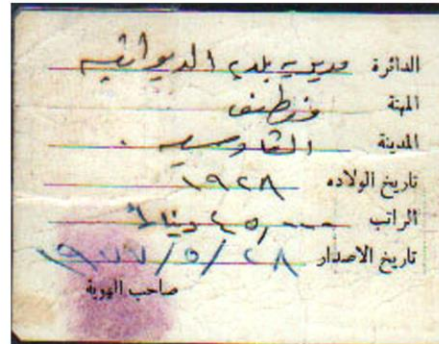 الدائرة مديرية بلدية الديوانية
المهنة موظف
المدينة القادسية
تاريخ الولاده ١٩٢٨
الراتب ٤٥,٠٠٠ دينار
تاريخ الاصدار ١٩٧٧/٥/٢٨
صاحب الهوية